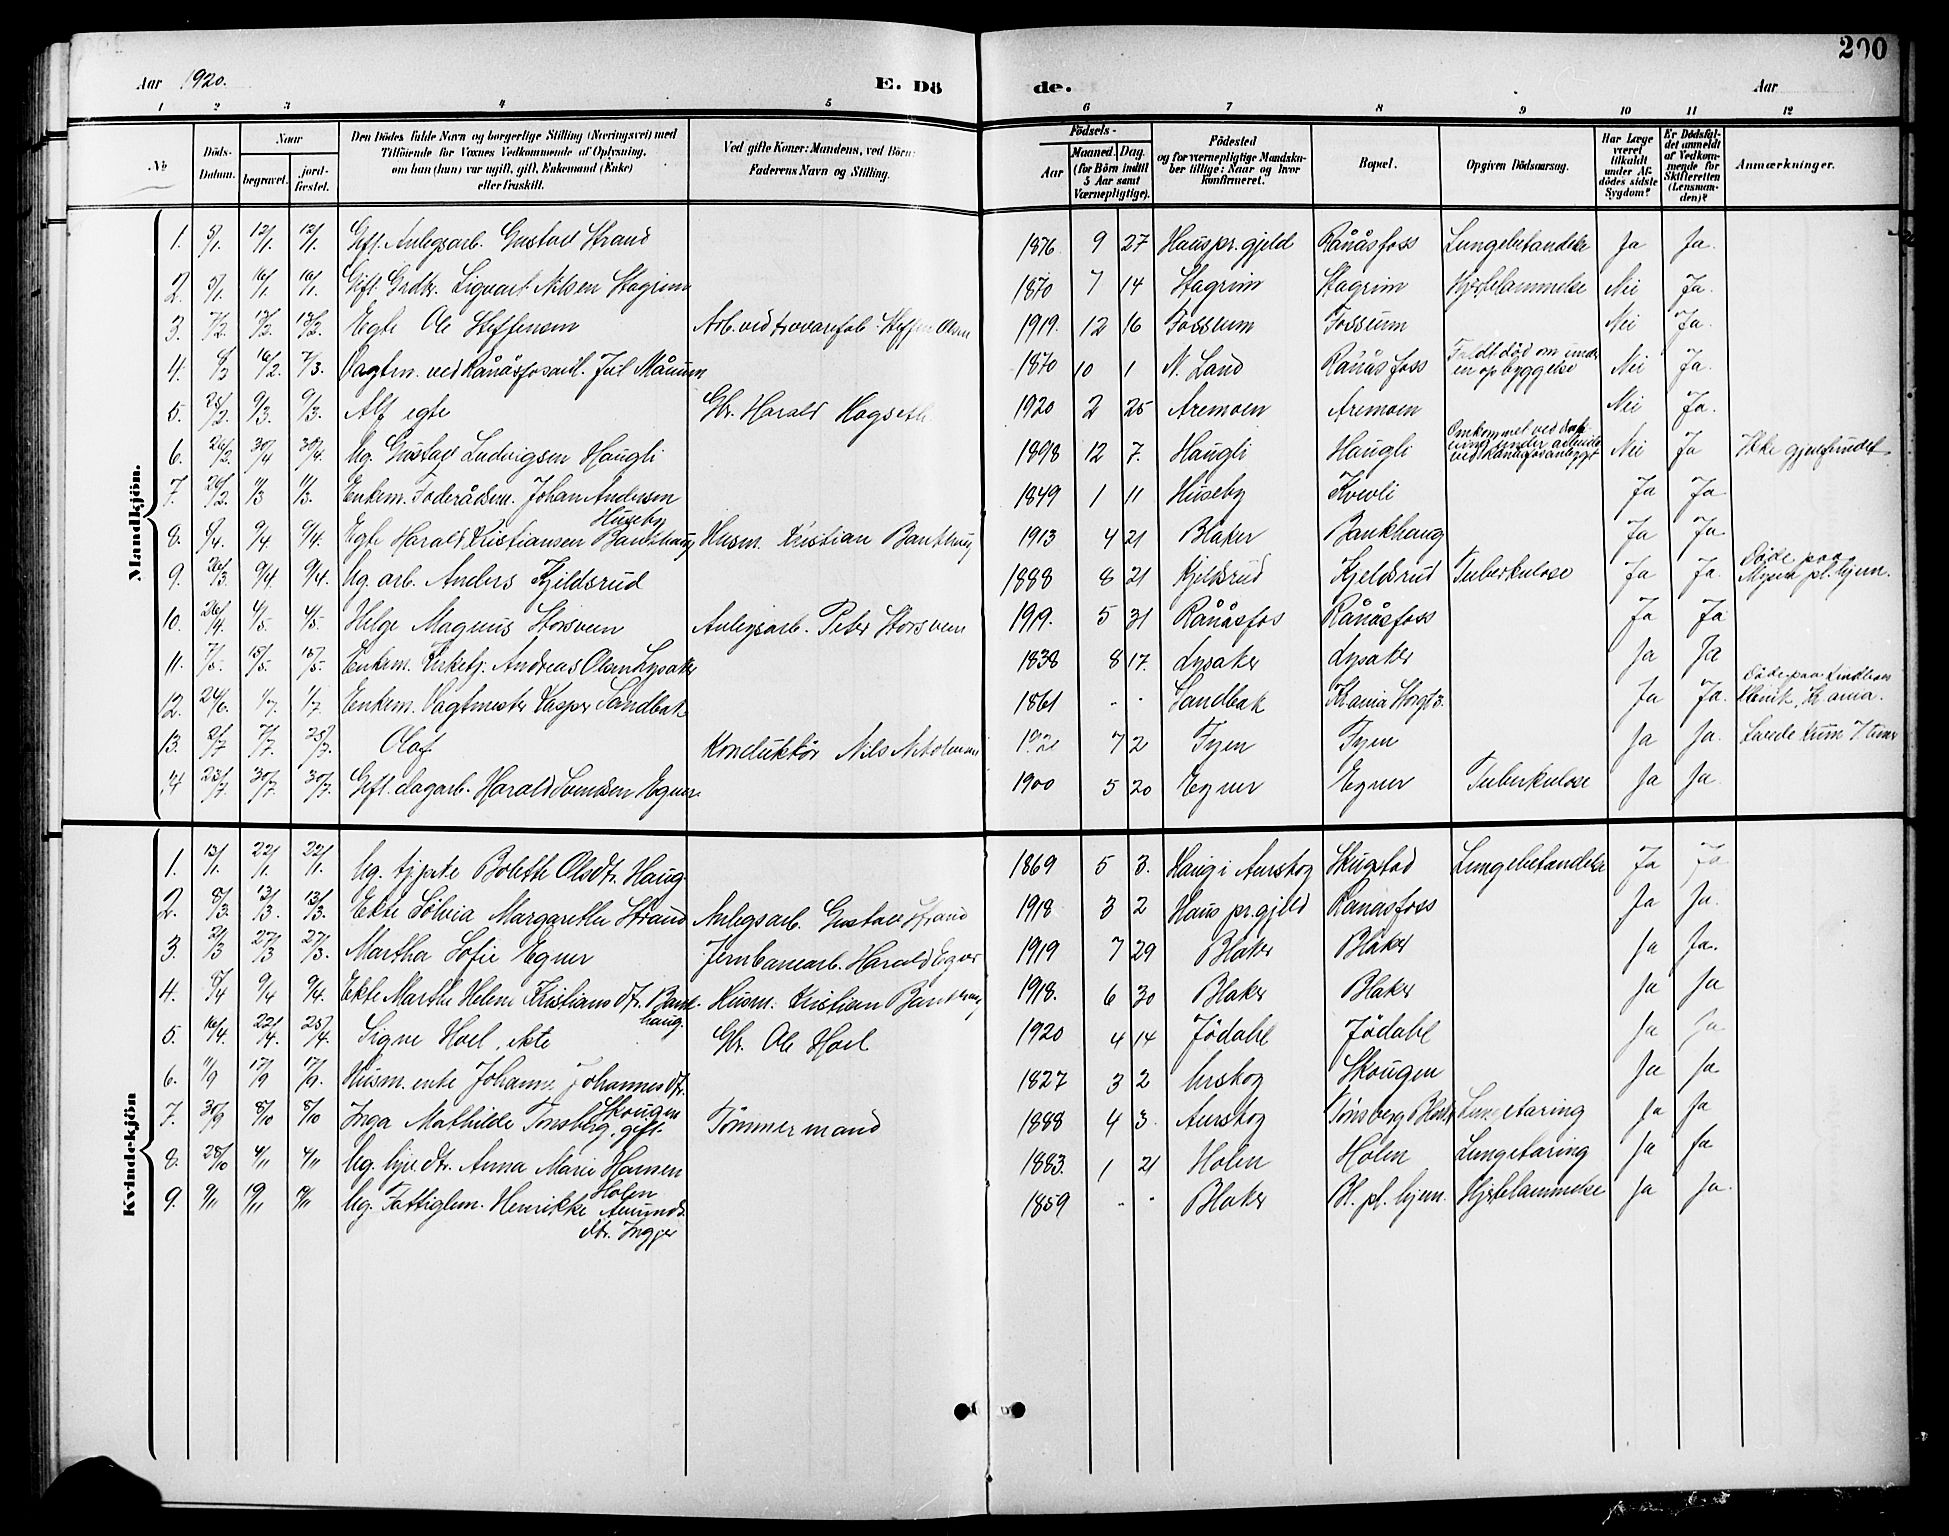 200
Aar 1920. E. Dö de. Aar
1 2 3 4 5 6 7 8 9 10 11 12
No Döds-Datum. Naar begravet. jord-fæstet. Den Dödes fulde Navn og borgerlige Stilling (Næringsvei) med Tilföiende for Voxnes Vedkommende af Oplysning, om hun (han) var ugift, gift, Enkemand (Enke) eller fraskilt. Ved gifte Koner: Mandens, ved Börn: Faderens Navn og Stilling. Födsels- Aar Maaned. Dag. (for Börn indtil 5 Aar samt Værnepligtige). Födested og for værnepligtige Mandskaber tillige: Naar og hvor konfirmeret. Bopæl. Opgiven Dödsaarsag. Har Læge været tilkaldt under Afdödes sidste Sygdom? Er Dödsfaldet anmeldt af Vedkommende for Skifteretten (Lensmanden)? Anmærkninger.
Mandkjön.
1. 5/1. 12/1. 12/1. Gift. Anlegsarb. Gustav Strand 1876 9 27 Haus pr. gjeld Rånåsfoss Lungebetændelse Ja Ja.
2. 5/1. 16/1. 16/1. Gift. Grdbr. Sigvart Nilsen Stagrim 1870 7 14 Stagrim Stagrim Hjertelammelse Nei Ja.
3. 7/2. 13/2. 13/2. Egte Ole Steffensen Arb. ved trævarefab. Steffen Olsen 1919. 12 16 Fossum Fossum Nei Ja.
4. 8/2 16/2. 7/3. Vagtm. ved Rånåsfosanl. Jul Månum 1870 10 1 N. Land Rånåsfoss Faldt død om under en opbyggelse Nei Ja.
5. 25/2. 9/3. 9/3. Alf egte Gbr. Harald Hogseth 1920 2 25 Aremoen Aremoen Nei Ja.
6. 26/3. 30/4 30/4. Ug. Gustav Ludvigsen Haugli 1898 12 7. Haugli Haugli Omkommet ved drukning under arbeide ved Rånåsfosanlegget Nei Ja Ikke gjenfundet
7. 26/2. 11/3 11/3. Enkem. Foderådsm. Johan Andersen Huseby 1849 1 11 Huseby Kvevli Ja Ja
8. 5/4. 9/4. 9/4. Egte Harald Kristiansen Bankhaug Husm. Kristian Bankhaug 1913 4 21 Blaker Bankhaug Ja Ja
9. 26/3. 9/4 9/4. Ug. arb. Anders Kjeldsrud 1888 8 21 Kjeldsrud Kjeldsrud Tuberkulose Ja Ja Døde paa pl. hjem.
10. 26/4. 4/5. 4/5. Helge Magnus Storsveen Anlegsarb. Peter Storsveen 1919. 5 31 Rånåsfos Rånåsfoss Ja Ja
11. 7/5. 15/5. 15/5. Enkem. Kirketj. Andreas Olsen Lysaker 1838 8 17. Lysaker Lysaker Ja Ja
12. 24/6. 1/7. 1/7 Enkem. Vagtmester Kasper Sandbak 1861 - - Sandbak Krania Ja Ja. Døde paa klinik, Krania.
13. 2/7 7/7. 25/7. Olaf Konduktør Nils Nikolaisen 1920 7 2 Fyen Fyen Ja Ja. Levede kun 7 timer
14 23/7 30/7 30/7. Gift. dagarb. Harald Svendsen Egner 1900 5 20 Egner Egner Tuberkulose Ja Ja.
Kvindekjön
1. 13/1. 22/1. 22/1. Ug. tjpike Bolette Olsdtr. Haug. 1869 5 3. Haug i Aurskog Skugstad Lungebetændelse Ja Ja
2. 8/3. 13/3. 13/3. Ekte Sølvia Margarethe Strand Anlegsarb. Gustav Strand 1918 3 2 Haus pr. gjeld Rånåsfoss Ja Ja.
3. 21/3 27/3 27/3. Martha Sofie Egner Jernbanearb. Harald Egner 1919 7 29 Blaker Blaker Ja Ja.
4. 8/4 9/4 9/4. Ekte Marthe Helene Kristiansdtr. Bankhaug. Husm. Kristian Bankhaug 1918. 6 30 Blaker Blaker Ja Ja
5. 16/4. 22/4. 25/4. Signe Hoel, ekte Gbr. Ole Hoel 1920 4 14 Jødahl Jødahl Ja Ja
6. 11/9 17/9 17/9. Husm. enke Johanne Johannesdtr. Skougen 1827 3 2 Urskog Skougen Ja Ja
7. 30/9 8/10 8/10 Inga Mathilde Tønsberg. gift. Tømmermand 1888 4 3. Aurskog Tønsberg Blaker Lungetæring Ja Ja
8. 28/10 4/11 4/11 Ug. hjv. dtr. Anna Marie Hansen Holen 1883. 1 21 Holen Holen Lungetæring Ja Ja
9. 9/11 19/11 19/11 Ug. Fattiglem. Henrikke Amundsdtr. Ingjer 1859 - - Blaker Bl. pl. hjem. Hjertelammelse Ja Ja.